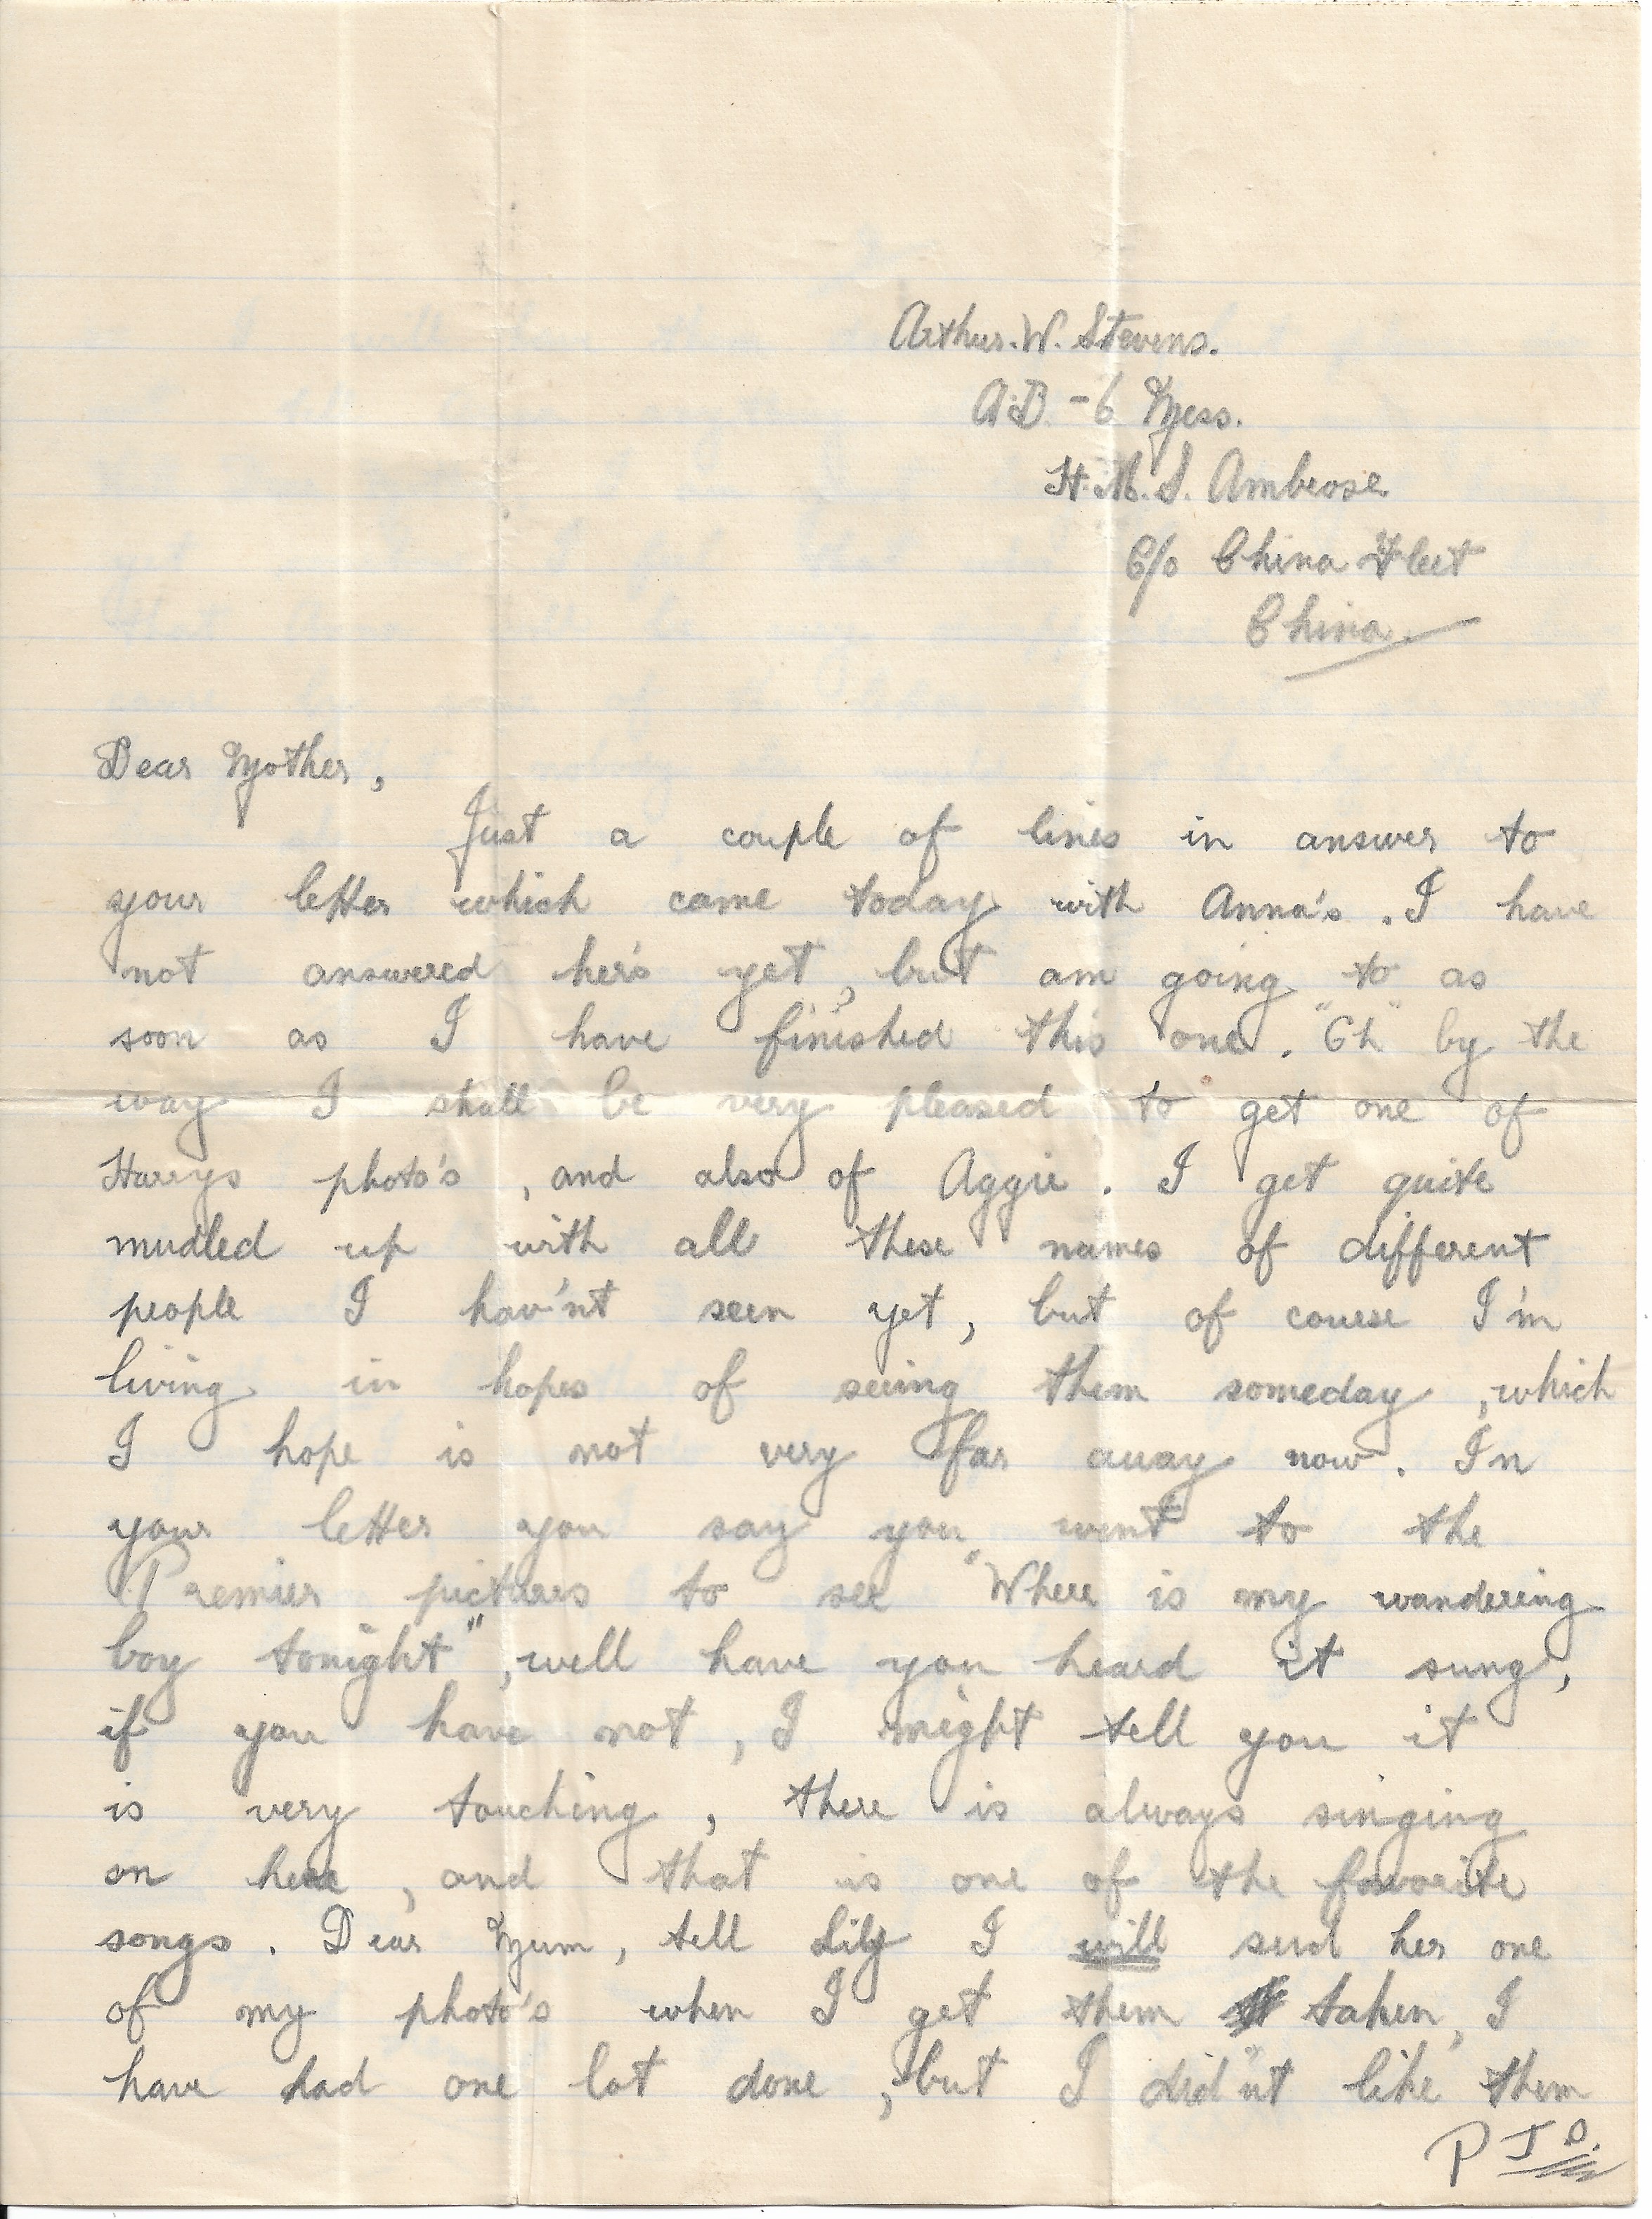 Arthur. W. Stevens.
A.B. - 6 Mess.
H. M. S. Ambrose.
C/o China Fleet
China.
Dear Mother,
Just a couple of lines in answer to
your letter which came today with Anna's. I have
not answered her's yet, but am going to as
soon as I have finished this one. "Oh" by the
way I shall be very pleased to get one of
Harrys photo's, and also of Aggie. I get quite
mudled up with all these names of different
people I hav'nt seen yet, but of course I'm
living in hopes of seeing them someday, which
I hope is not very far away now. In
your letter you say you went to the
Premier pictures to see "Where is my wandering
boy tonight", well have you heard it sung,
if you have not, I might tell you it
is very touching, there is always singing
on here, and that is one of the favorite
songs. Dear Mum, tell Lily I will send her one
of my photo's when I get them taken, I
have had one lot done, but I did'nt like them
P.T.O.